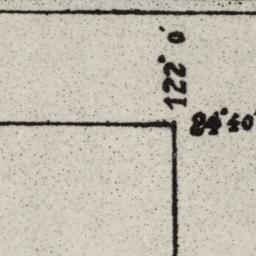 122° 0'
24° 40'